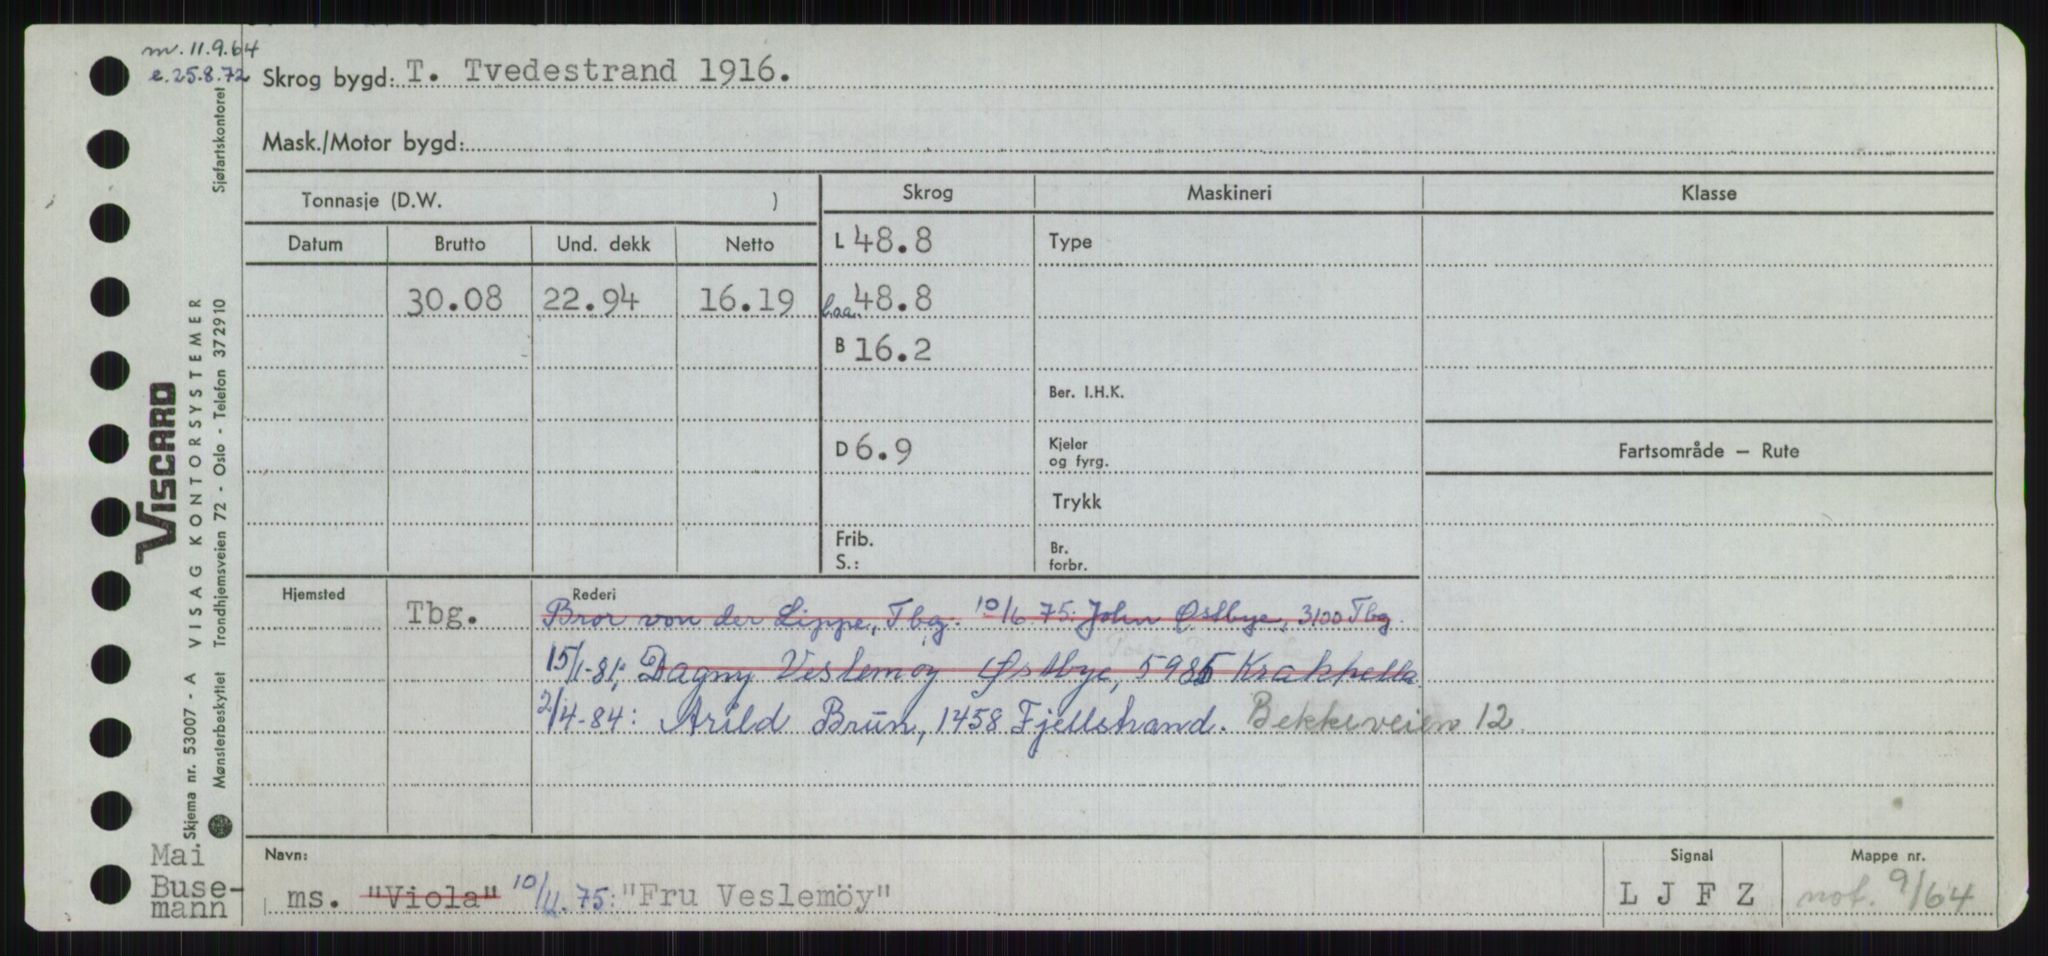 m. 11.9.64
e. 25.8.72
Skrog bygd: T. Tvedestrand 1916.
Mask./Motor bygd:
Tonnasje (D.W. )
Skrog
Maskineri
Klasse
Datum
Brutto
Und. dekk
Netto
L 48.8
Type
30.08
22.94
16.19
Loa. 48.8
B 16.2
Ber. I.H.K.
D 6.9
Kjeler
og fyrg.
Fartsområde — Rute
Trykk
Frib.
S.:
Br.
forbr.
Hjemsted
Rederi
Tbg.
Bror von der Lippe, Tbg. 10/6 75: John Østbye, 3100 Tbg
15/1-81; Dagny Veslemøy Østbye, 5985 Krakhella
2/4-84: Arild Brun, 1458 Fjellstrand. Bekkeveien 12
Navn:
Signal
Mappe nr.
ms. "Viola" 10/4.75: "Fru Veslemöy"
L J F Z
not. 9/64
Mai
Buse-
mann
VISCARD
VISAG KONTORSYSTEMER
Skjema nr. 53007 - A
Mønsterbeskyttet
Trondhjemsveien 72 - Oslo - Telefon 372910
Sjøfartskontoret